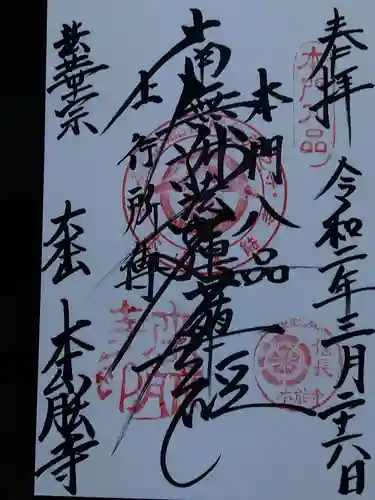 奉拝
令和二年三月二十六日
本門八品
本門八品
南無妙法蓮華経
上行所傳
法華宗
大本山 本能寺
信長
本能寺